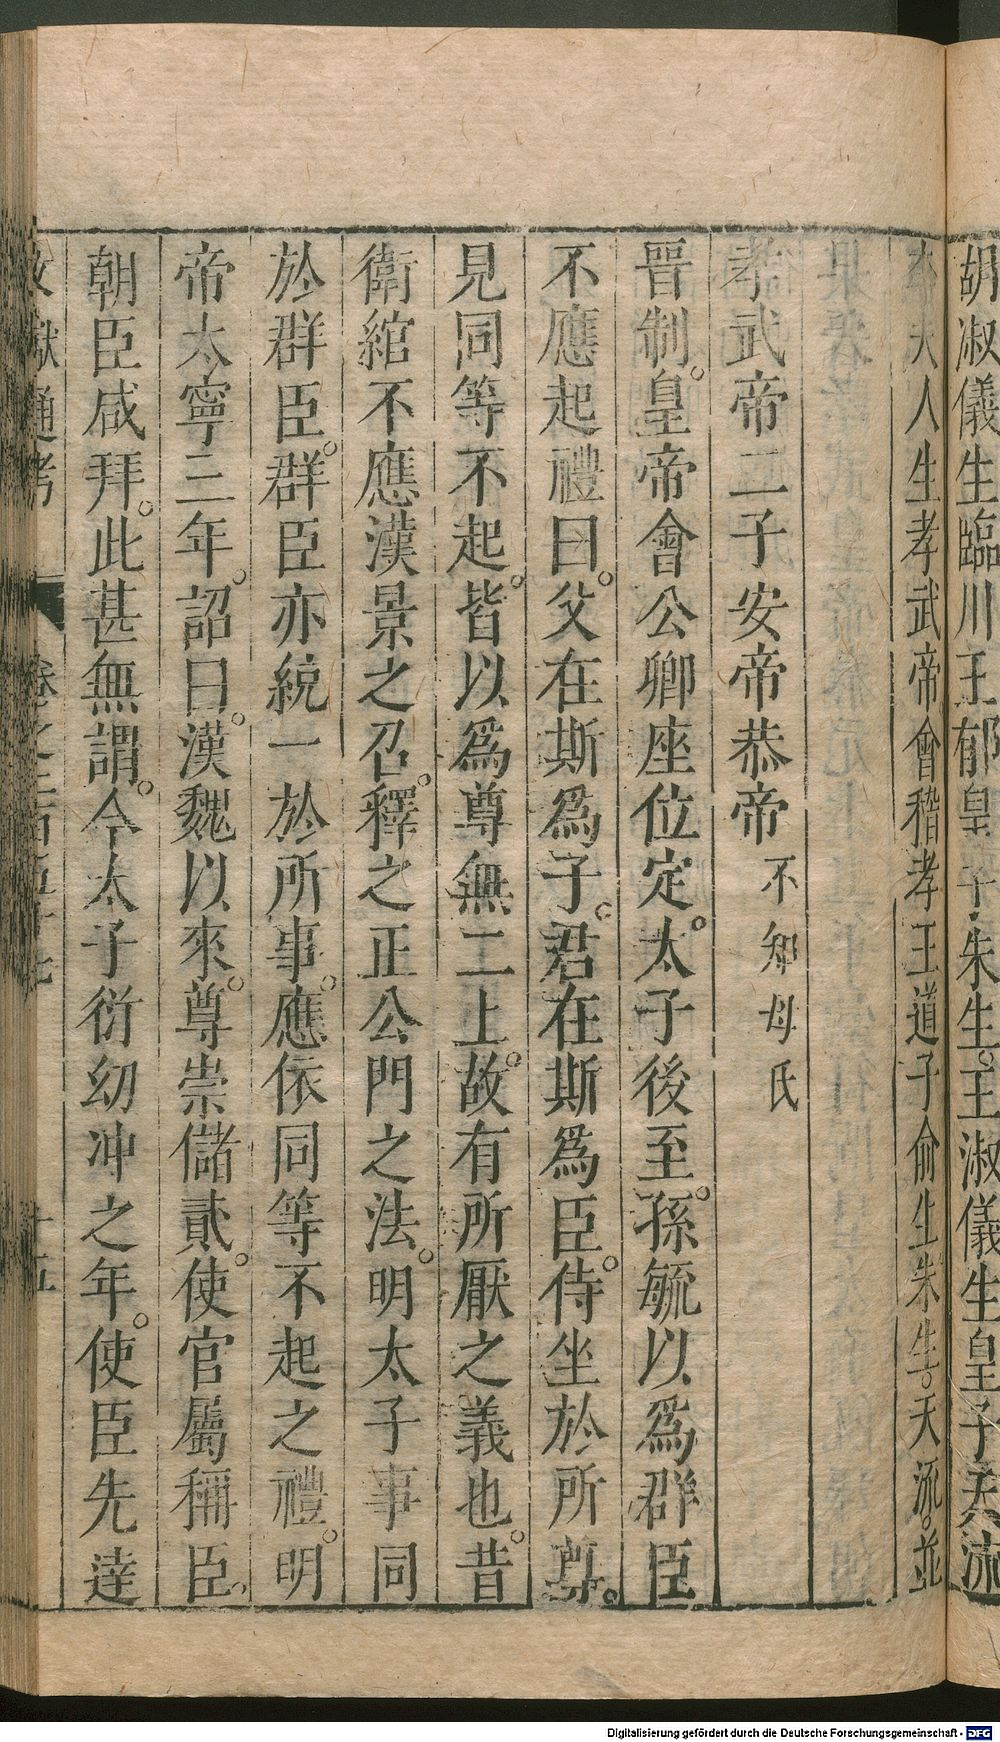 胡淑儀生臨川王郁皇子朱生。王淑儀生皇子天流
李夫人生孝武帝會稽孝王道子俞生朱生。天流。並
孝武帝二子安帝恭帝不知母氏
晉制。皇帝會公卿座位定。太子後至。孫毓以爲群臣
不應起禮曰。父在斯爲子。君在斯爲臣。侍坐於所尊。
見同等不起。皆以爲尊無二上。故有所厭之義也。昔
衛綰不應漢景之召。釋之正公門之法。明太子事同
於群臣。群臣亦統一於所事。應依同等不起之禮。明
帝太寧三年。詔曰。漢魏以來。尊崇儲貳。使官屬稱臣。
朝臣咸拜。此甚無謂。今太子衍幼冲之年。使臣先達
文獻通考 卷之二百五十七 十五
Digitalisierung gefördert durch die Deutsche Forschungsgemeinschaft - DFG